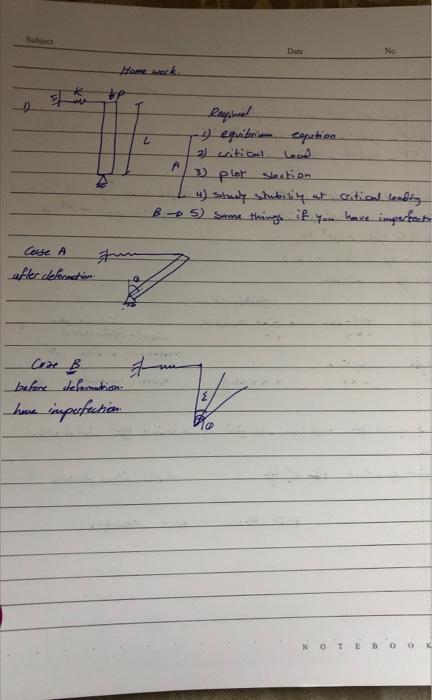 Subject
Date
No.
Home work.
K
P
1)
Required
L
1) equibriam eqution
2) critical load
A
3) plot slution
4) study stability at critical loading
B → 5) same things if you have imperfect
Case A
after deformation
θ
Case B
before deformation.
have imperfection.
ε
θ
NOTEBOOK